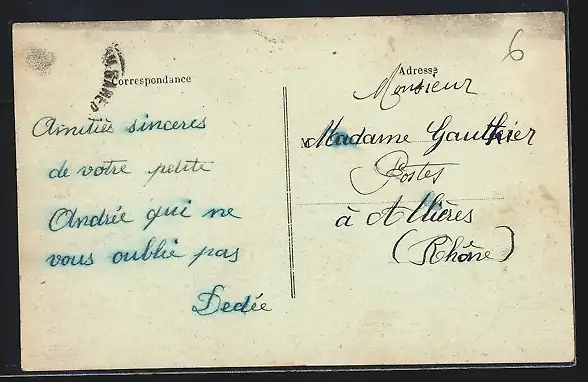 6
Correspondance
Adresse
Amitiés sinceres
de votre petite
Andrée qui ne
vous oublie pas
Dedée
Monsieur
Madame Gauthier
Postes
à Allières
(Rhône)